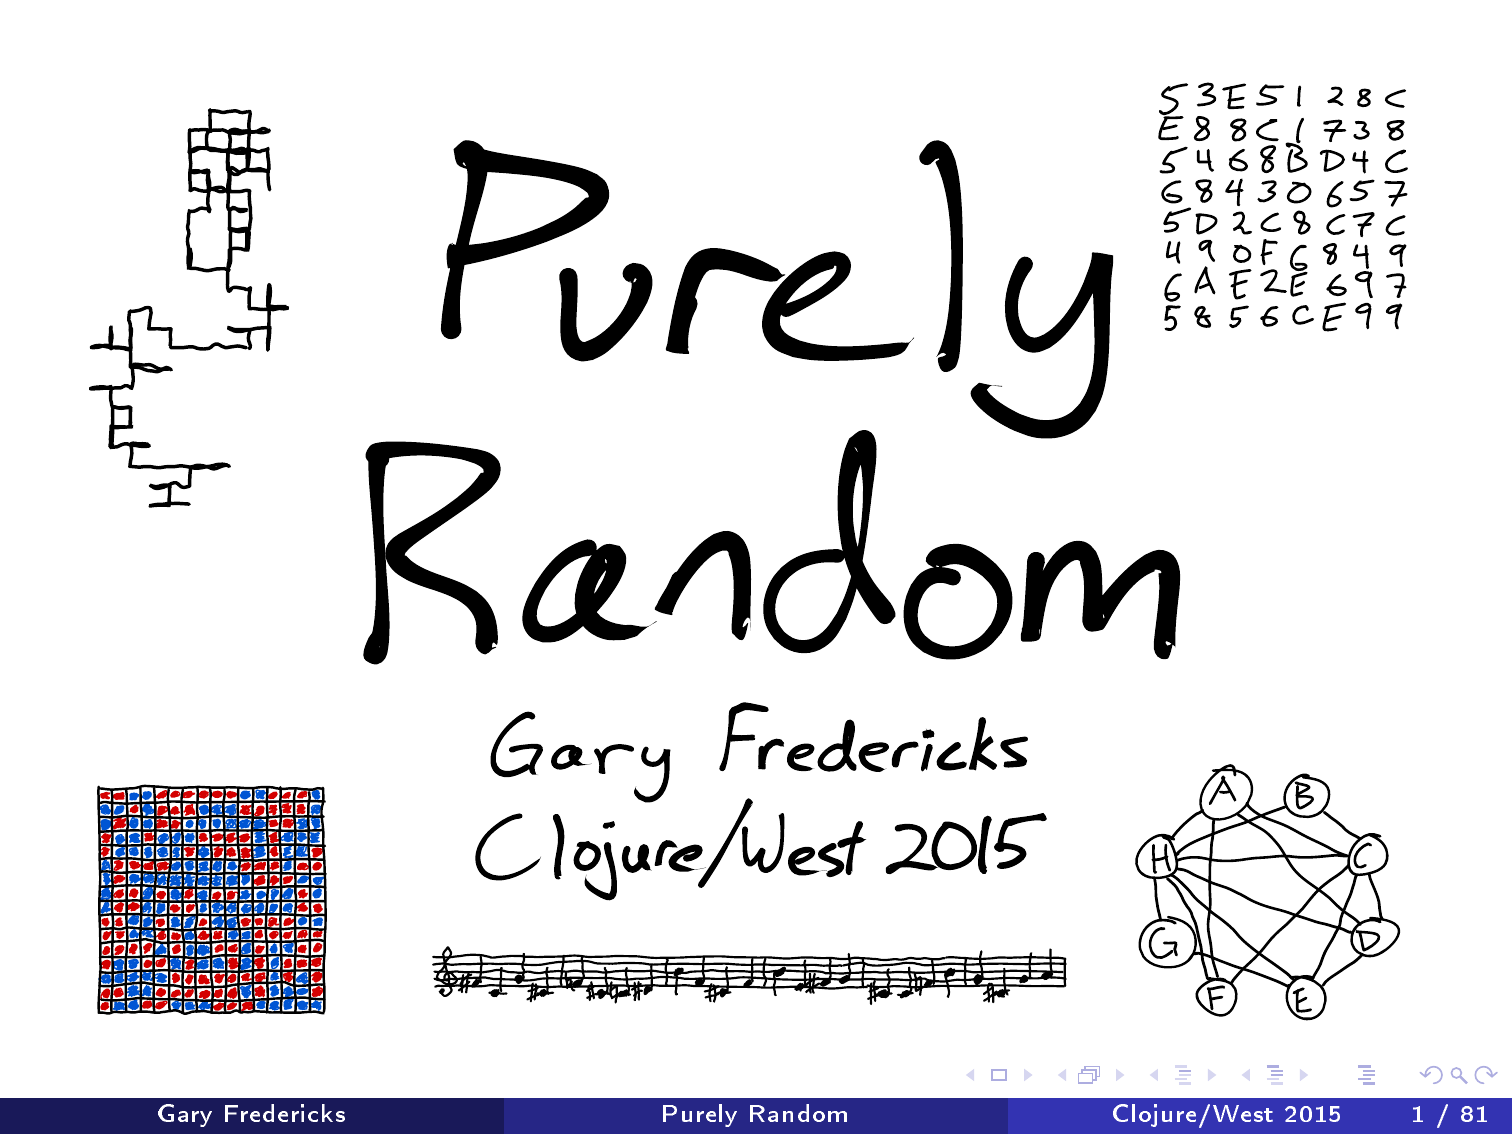 5 3 E 5 1 2 8 C
E 8 8 C 1 7 3 8
5 4 6 8 B D 4 C
6 8 4 3 0 6 5 7
5 D 2 C 8 C 7 C
4 9 0 F 6 8 4 9
6 A E 2 E 6 9 7
5 8 5 6 C E 9 9
Purely
Random
Gary Fredericks
Clojure/West 2015
A B
H C
G D
F E
Gary Fredericks Purely Random Clojure/West 2015 1 / 81